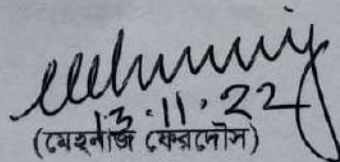 13.11.22
(মেহনাজ ফেরদৌস)